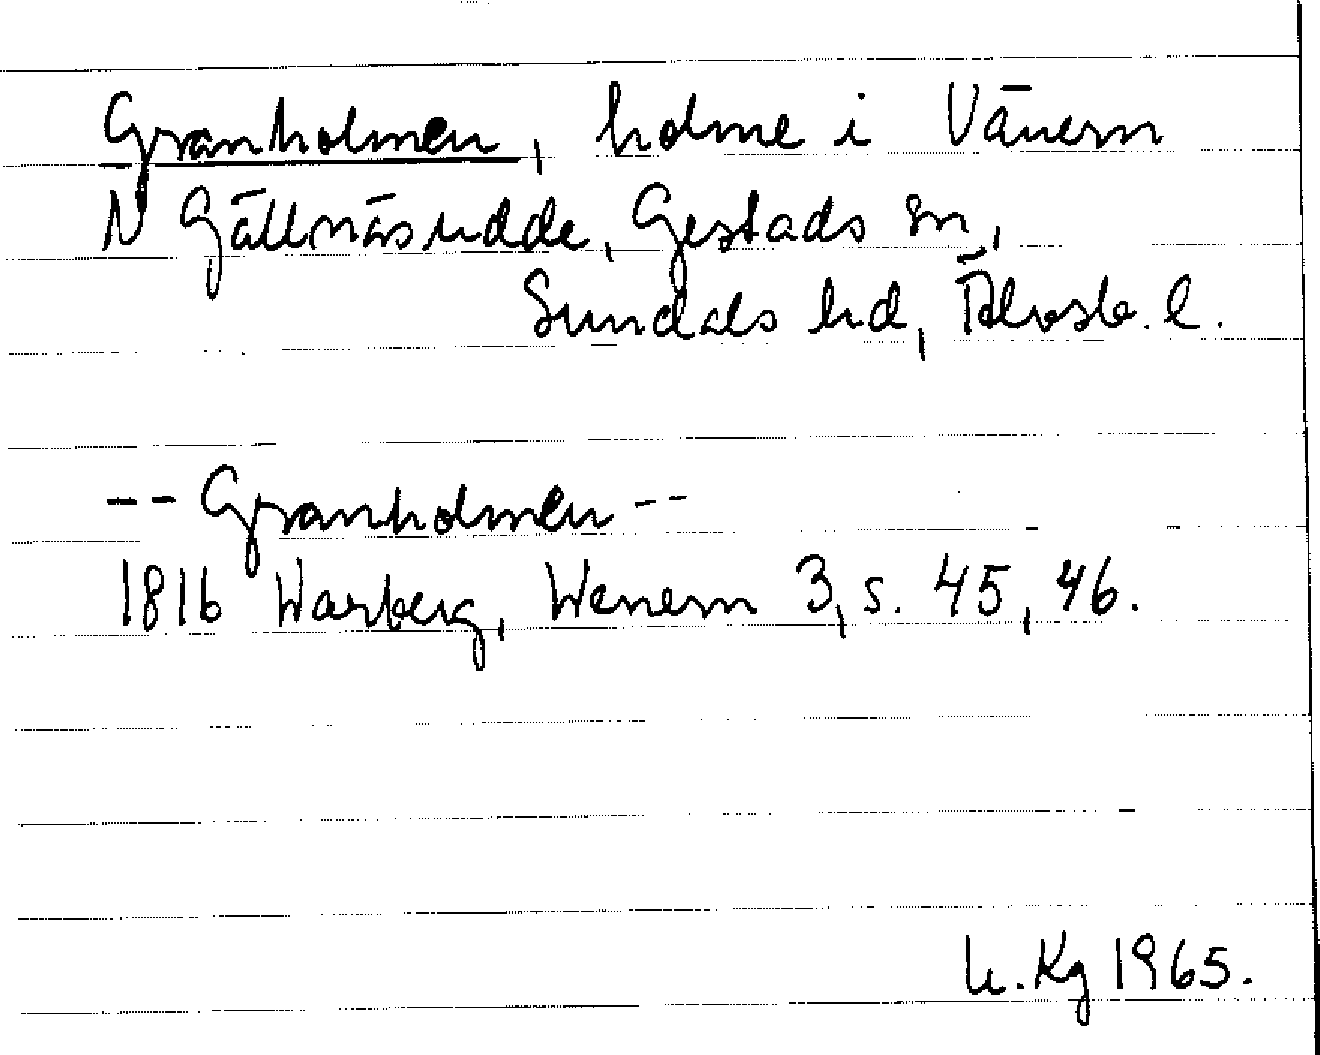 Granholmen, holme i Vänern
N Gällnäsudde, Gestads sn,
Sundals hd, Älvsb. l.
-- Granholmen --
1816 Warberg, Wenern 3, s. 45, 46.
Kg 1965.